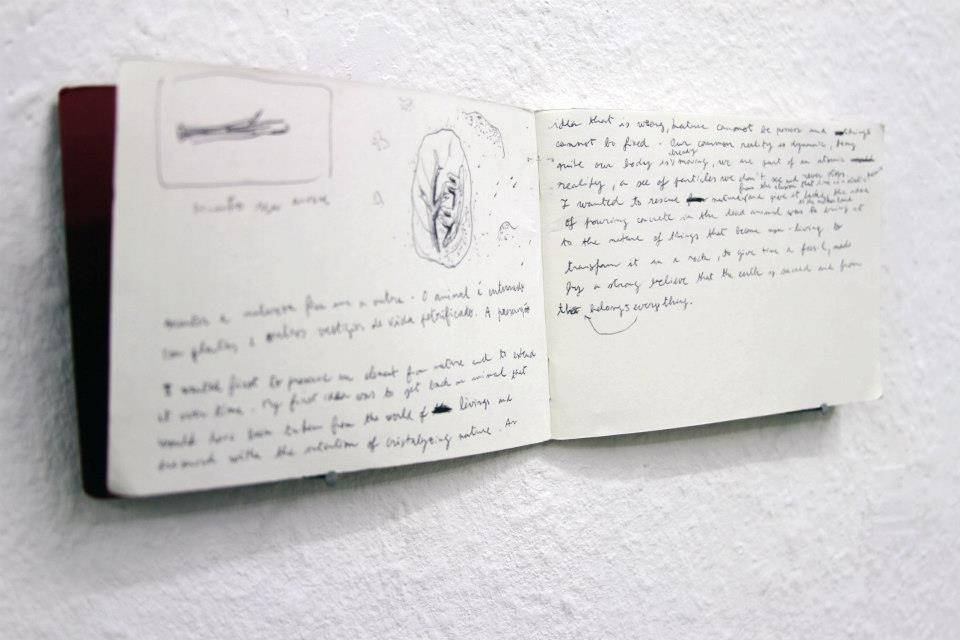 a natureza fica una a outra. O animal é enterrado
com plantas e outros vestigios de vida petrificado. A
I wanted first to preserve an element from nature and to extend
it over time. My first idea was to get back an animal that
would have been taken from the world of livings and
with the intention of cristalyzing nature. An
idea that is wrong, nature cannot be frozen and things
cannot be fixed. Our common reality is dynamic, being
quite our body is already moving, we are part of an atomic
reality, a see of particles we don't see and never stops
from the illusion that time is
I wanted to rescue nature and give it
to the motherland
of pouring concrete in the dead animal was to bring it
to the nature of things that become non-living, to
transform it in a rock, to give time a fossil, made
by a strong believe that the earth is sacred and from
that belongs everything.